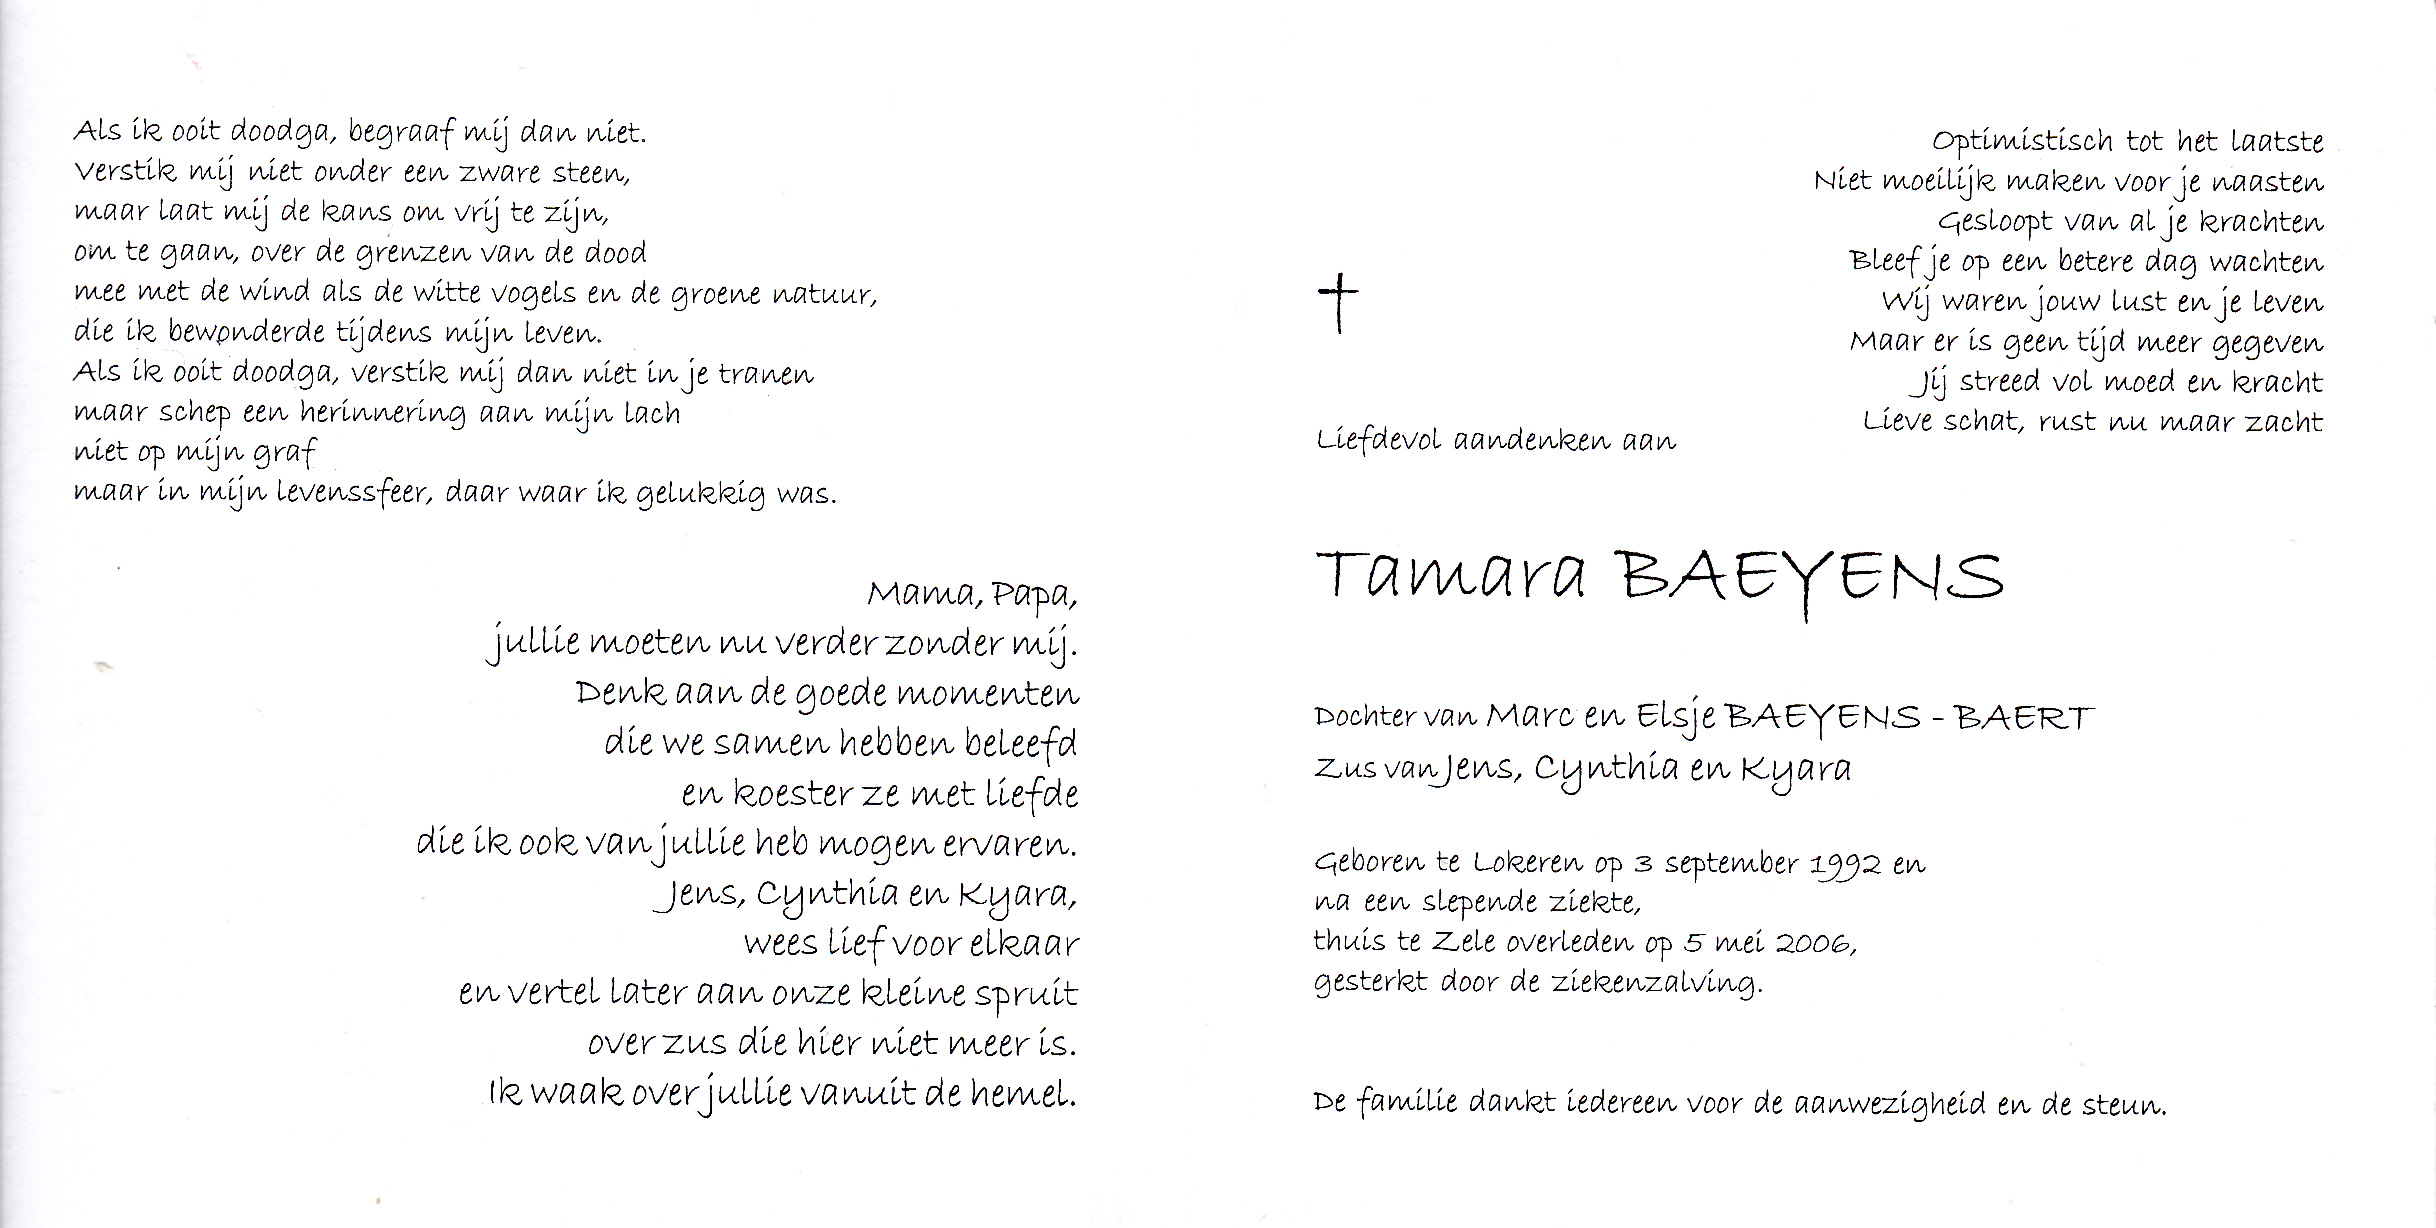 Als ik ooit doodga, begraaf mij dan niet.
Verstik mij niet onder een zware steen,
maar laat mij de kans om vrij te zijn,
om te gaan, over de grenzen van de dood
mee met de wind als de witte vogels en de groene natuur,
die ik bewonderde tijdens mijn leven.
Als ik ooit doodga, verstik mij dan niet in je tranen
maar schep een herinnering aan mijn lach
niet op mijn graf
maar in mijn levenssfeer, daar waar ik gelukkig was.
Mama, Papa,
jullie moeten nu verder zonder mij.
Denk aan de goede momenten
die we samen hebben beleefd
en koester ze met liefde
die ik ook van jullie heb mogen ervaren.
Jens, Cynthia en Kyara,
wees lief voor elkaar
en vertel later aan onze kleine spruit
over zus die hier niet meer is.
Ik waak over jullie vanuit de hemel.
Optimistisch tot het laatste
Niet moeilijk maken voor je naasten
Gesloopt van al je krachten
Bleef je op een betere dag wachten
Wij waren jouw lust en je leven
Maar er is geen tijd meer gegeven
Jij streed vol moed en kracht
Lieve schat, rust nu maar zacht
Liefdevol aandenken aan
Tamara BAEYENS
Dochter van Marc en Elsje BAEYENS - BAERT
Zus van Jens, Cynthia en Kyara
Geboren te Lokeren op 3 september 1992 en
na een slepende ziekte,
thuis te Zele overleden op 5 mei 2006,
gesterkt door de ziekenzalving.
De familie dankt iedereen voor de aanwezigheid en de steun.